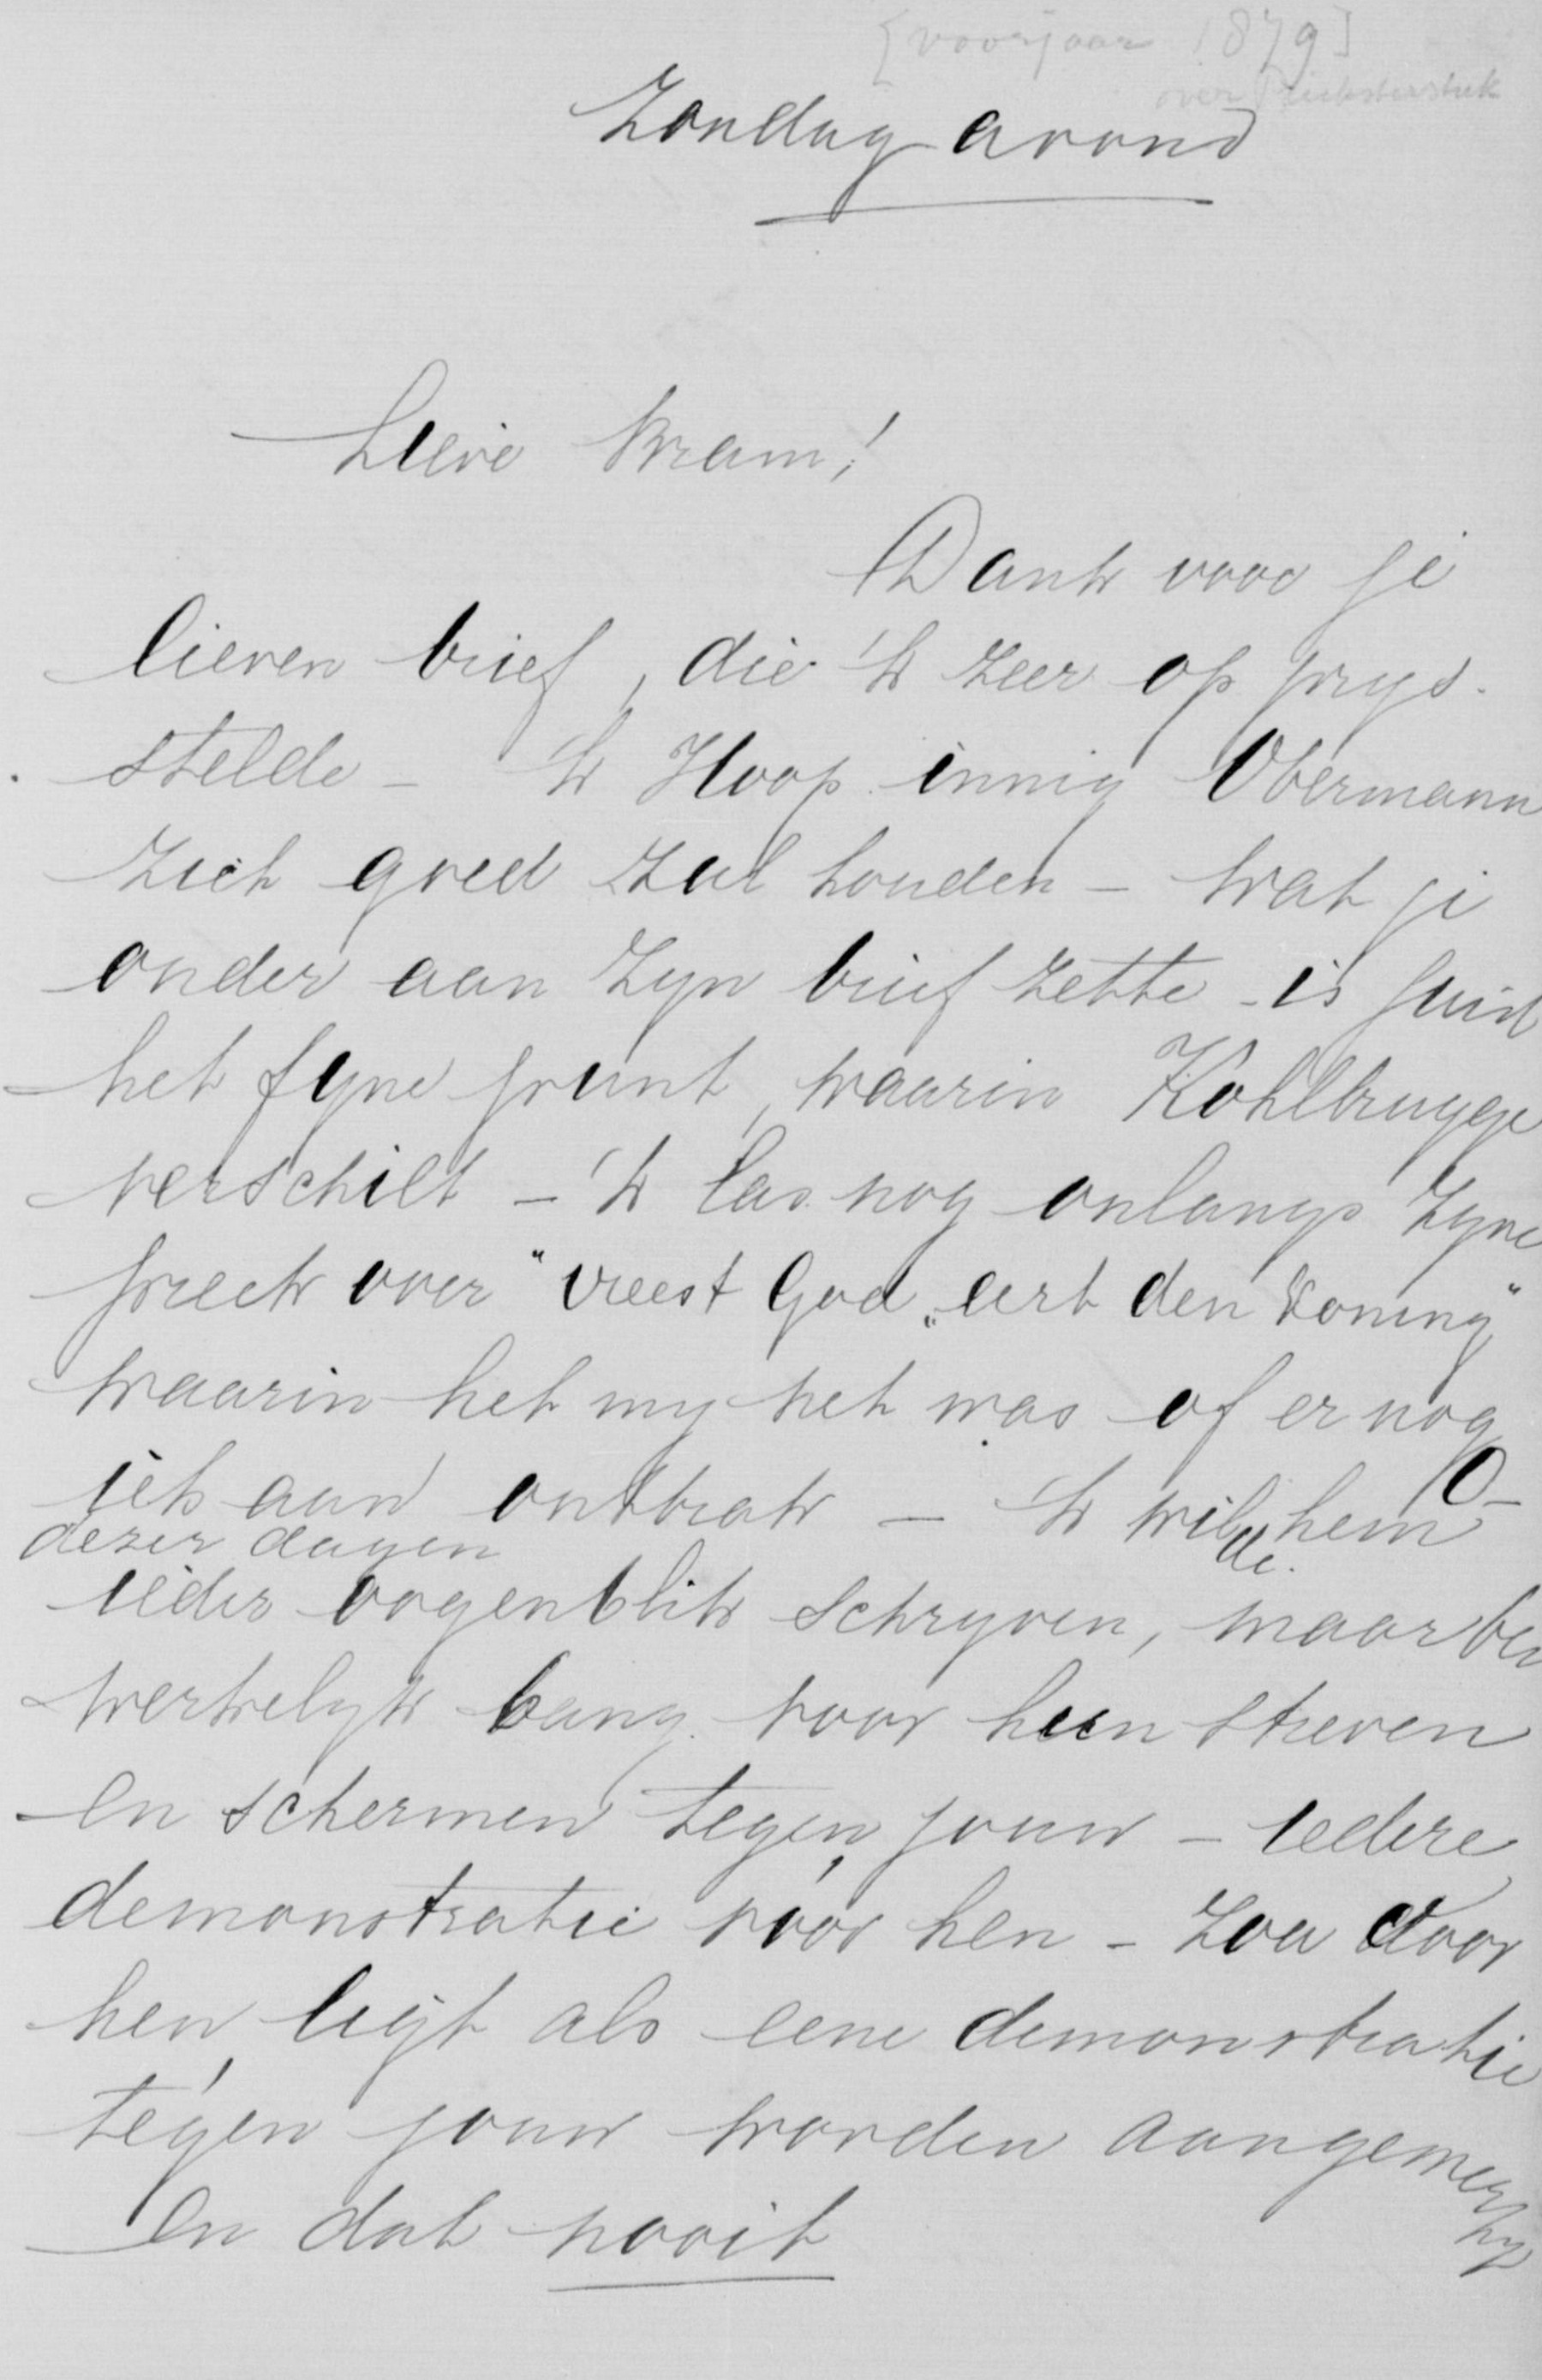 [voorjaar 1879]
over
Zondag avond
Lieve Bram!
Dank voor je
lieven brief, die 'k zeer op prys
stelde - 'k Hoop innig Obermann
zich goed zal houden - wat je
onder aan zyn brief zette - is juist
het fyne punt, waarin Kohlbrugge
verschilt - 'k las nog onlangs zyne
preek over "vreest God „eert den Koning"
waarin het my net was of er nog
iets aan ontbrak - 'k wilde hem
dezer dagen
ieder oogenblik schryven, maar ben
werkelyk bang voor hun streven
en schermen tegen jouw - iedere
demonstratie vóór hen - zou door
hen ligt als eene demonstratie
tégen jouw worden aangemerkt
en dat nooit